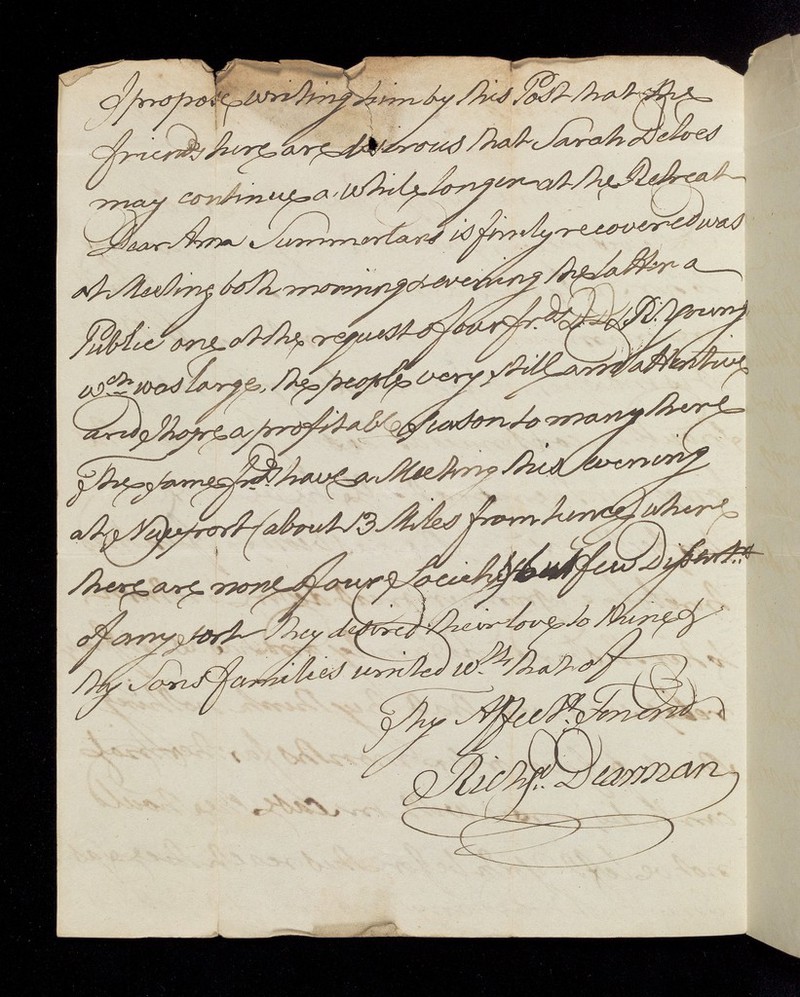 I propose writing him by this Post that the
friends here are desirous that Sarah Deloes
may continue a while longer at the Retreat
Dear Ann Summerland is finely recovered was
at Meeting both morning & evening the latter a
Public one at the request of our frds R. Young
wch was large, the people very still and attentive
and I hope a profitable season to many there
The same frds have a Meeting this evening
at Newport (about 13 Miles from hence) where
there are none of our Society & but few Dissentrs
of any sort they desired their love to thine &
thy Sons families united wth that of
Thy Affect. Friend
Richd. Dearman